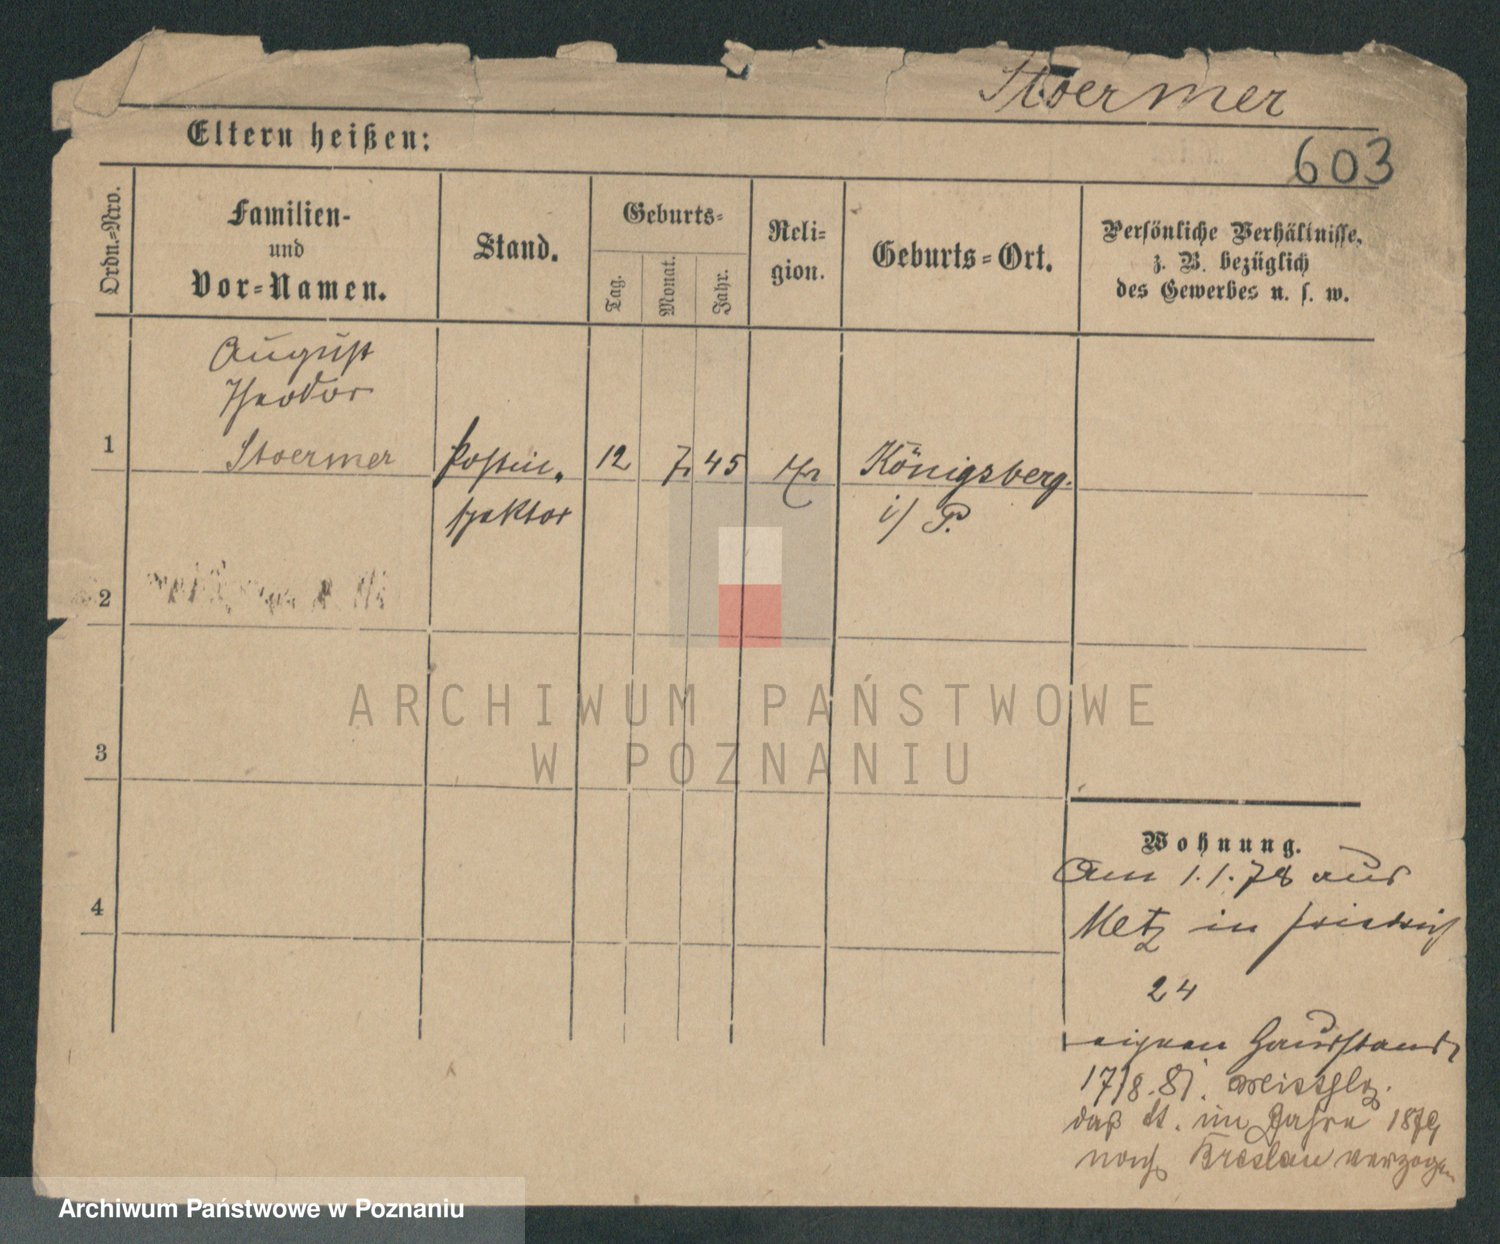 Stoermer
Eltern heißen:
603
Ordn.-Nro.
Familien-
und
Vor-Namen.
Stand.
Geburts-
Tag.
Monat.
Jahr.
Reli-
gion.
Geburts-Ort.
Persönliche Verhältnisse,
z. B. bezüglich
des Gewerbes u. s. w.
August
Theodor
1 Stoermer Postin- 12 7 45 Königsberg
spektor i/ P.
2
3
4
ARCHIWUM PAŃSTWOWE
W POZNANIU
Wohnung.
Am 1.1.78 aus
Metz in Friedrich
24
eigenen Hausstand
17/8.81.
daß St. im Jahre 1879
nach Breslau verzogen
Archiwum Państwowe w Poznaniu